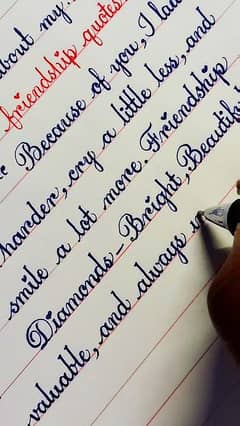 about my
friendship quotes
Because of you, I lau
harder, cry a little less, and
smile a lot more. Friendship
Diamonds - Bright, Beautiful
valuable, and always